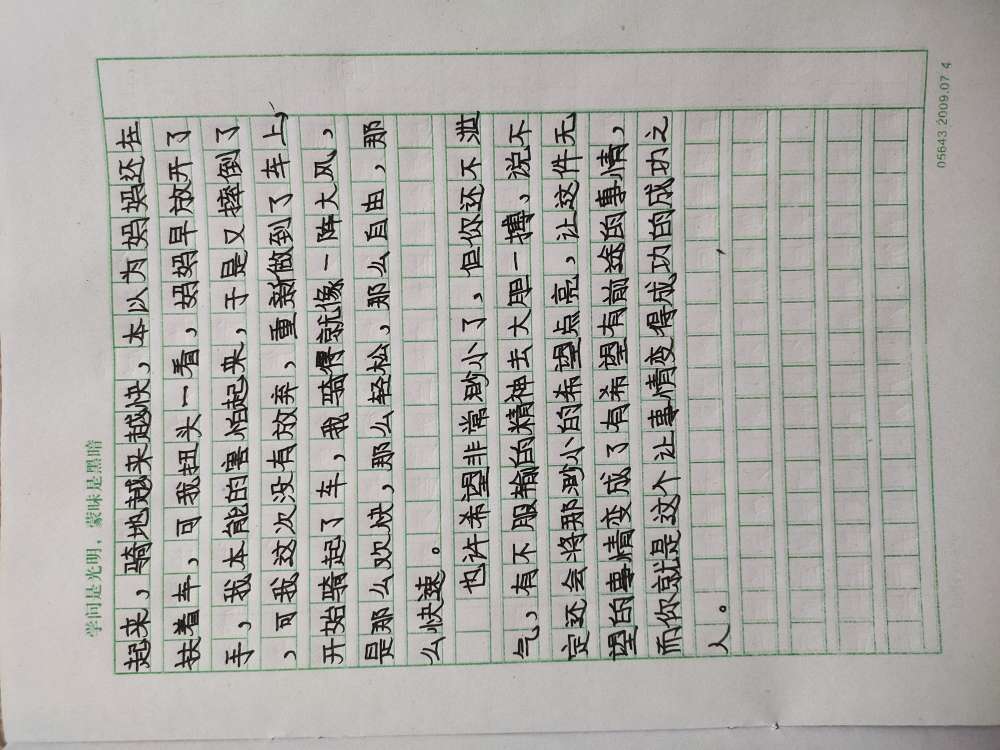 学问是光明，蒙昧是黑暗
起来，骑地越来越快，本以为妈妈还在
扶着车，可我扭头一看，妈妈早放开了
手，我本能的害怕起来，于是又摔倒了
，可我这次没有放弃，重新做到了车上，
开始骑起了车，我骑得就像一阵大风，
是那么欢快，那么轻松，那么自由，那
么快速。
也许希望非常渺小了，但你还不泄
气，有不服输的精神去大胆一搏，说不
定还会将那渺小的希望点亮，让这件无
望的事情变成了有希望有前途的事情，
而你就是这个让事情变得成功的成功之
人。
05643 2009.07 4